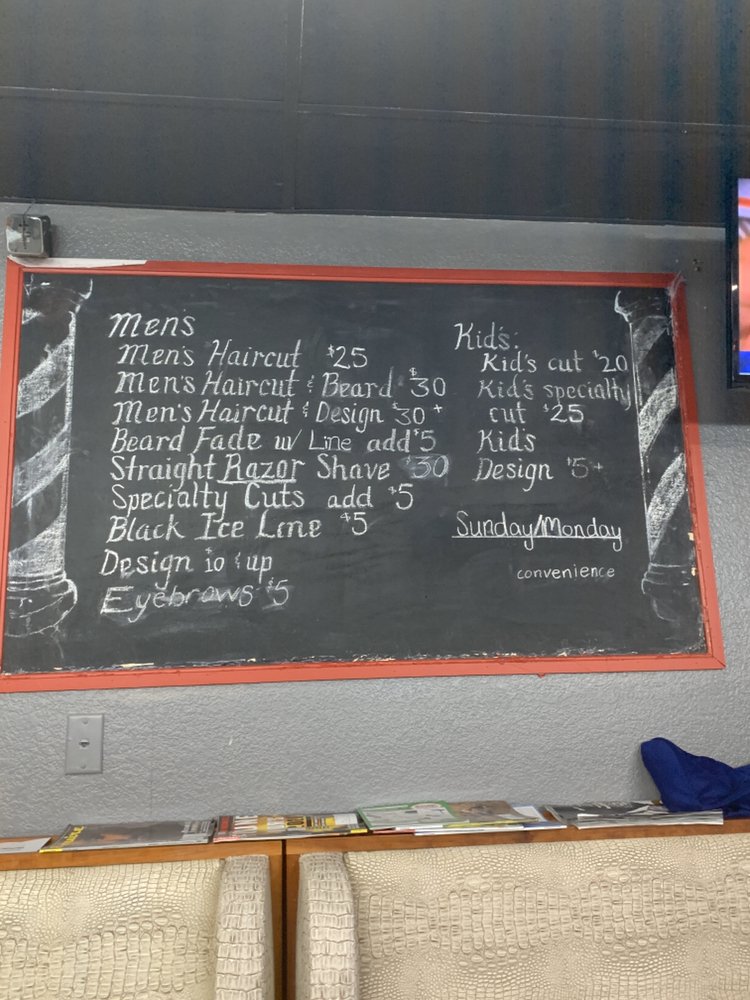 Men's
Men's Haircut $25
Men's Haircut & Beard $30
Men's Haircut & Design $30+
Beard Fade w/ Line add $5
Straight Razor Shave $30
Specialty Cuts add $5
Black Ice Line $5
Design 10 & up
Eyebrows $5
Kid's:
Kid's cut $20
Kid's specialty
cut $25
Kid's
Design $5+
Sunday/Monday
convenience